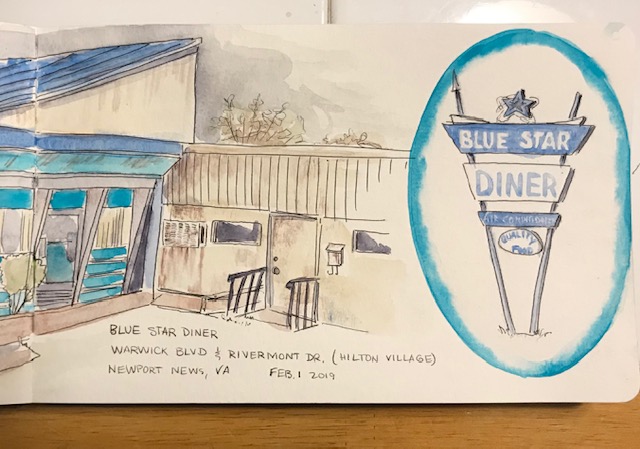 BLUE STAR
DINER
AIR CONDITIONED
QUALITY
FOOD
BLUE STAR DINER
WARWICK BLVD & RIVERMONT DR. (HILTON VILLAGE)
NEWPORT NEWS, VA FEB. 1 2019